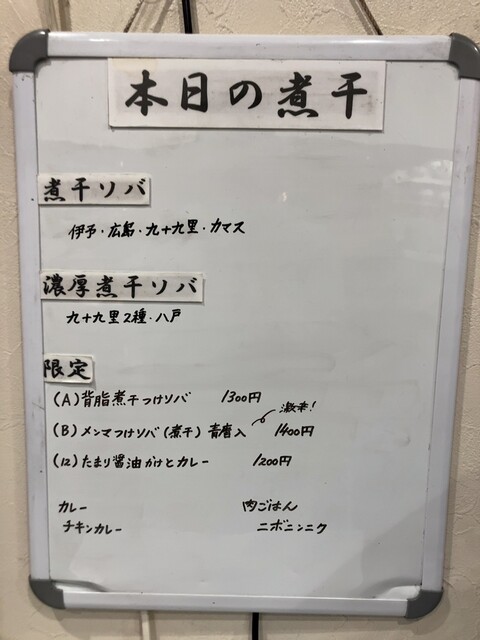 本日の煮干
煮干ソバ
伊予・広島・九十九里・カマス
濃厚煮干ソバ
九十九里2種・八戸
限定
(A)背脂煮干つけソバ 1300円
激辛!
(B)メンマつけソバ(煮干)青唐入 1400円
(12)たまり醤油かけとカレー 1200円
カレー 肉ごはん
チキンカレー ニボニンニク